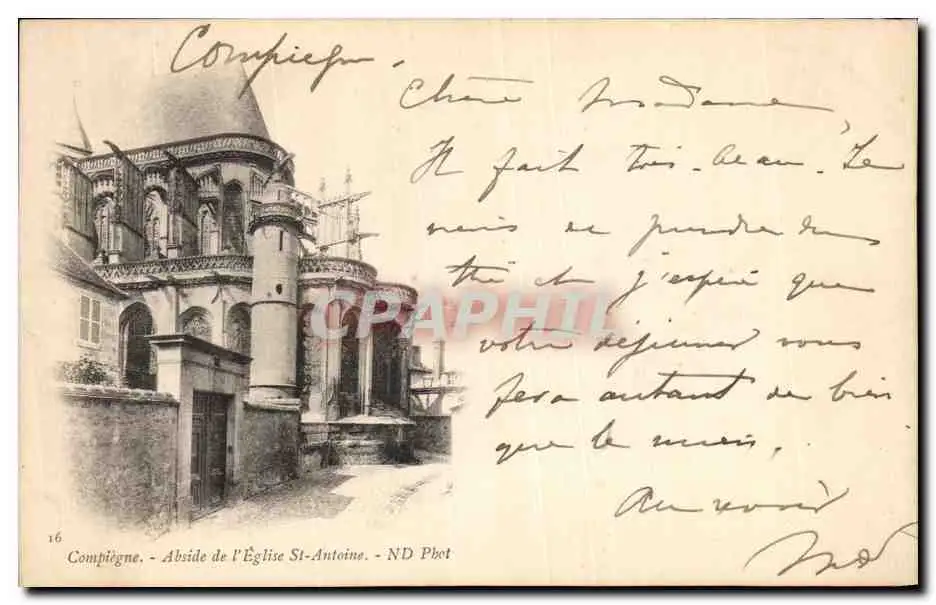 Compiègne.
Chère Madame
Il fait très beau. Je
viens de prendre du
thé et j'espère que
votre déjeuner vous
fera autant de bien
que le mien.
Au revoir
CPAPHIL
16
Compiègne. - Abside de l'Église St-Antoine. - ND Phot